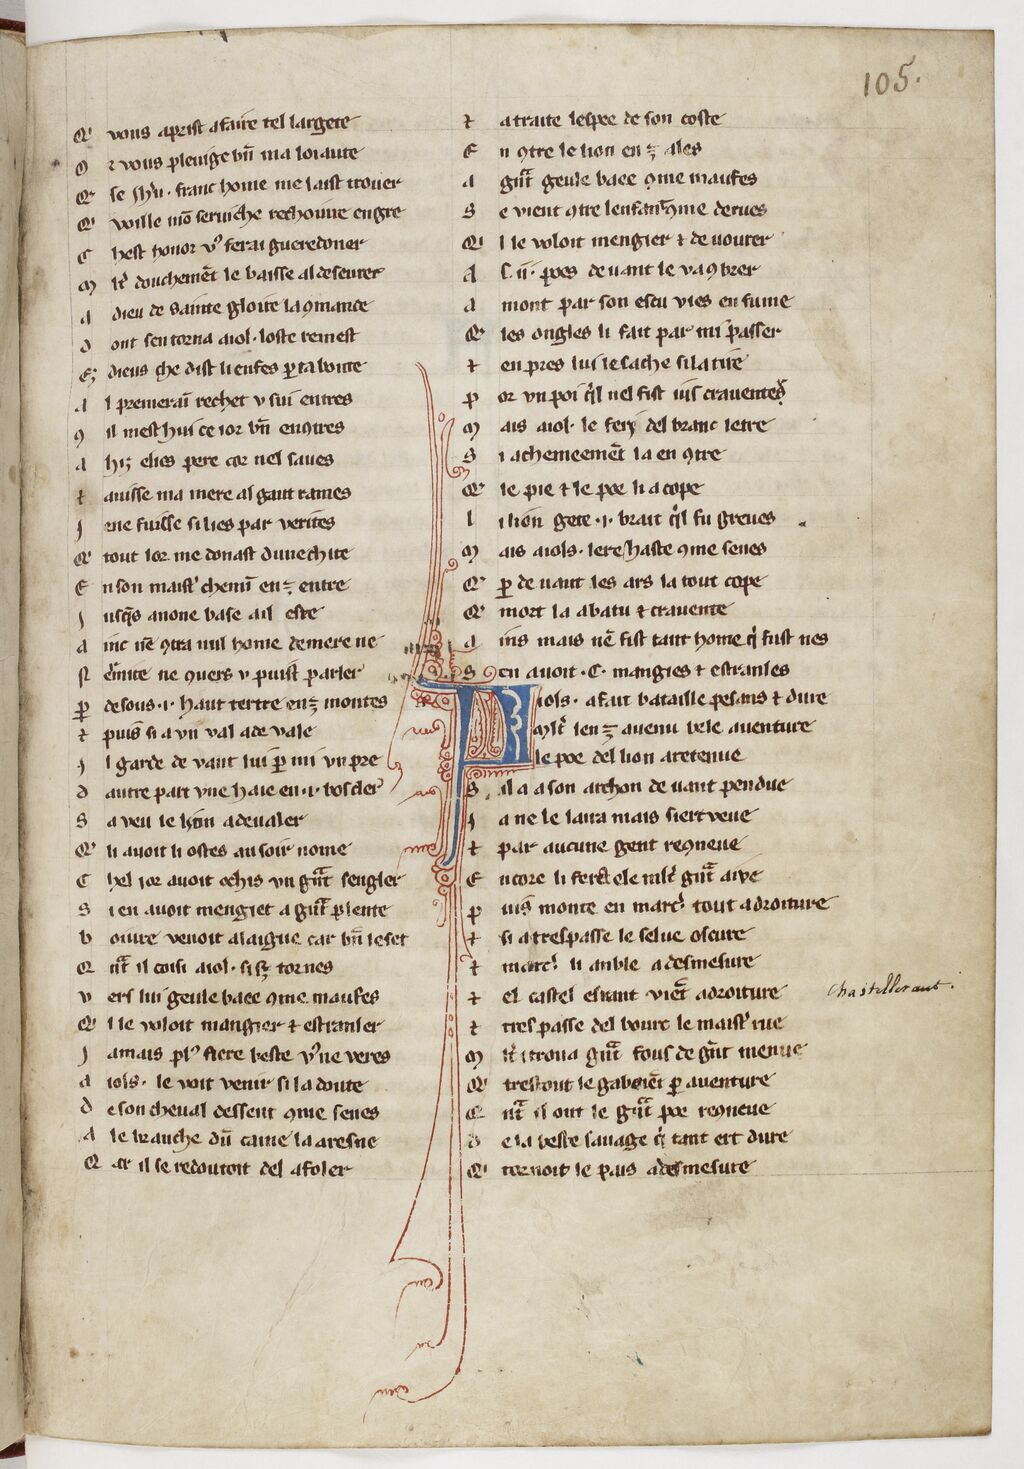 105.
Q' vous aprist afaire tel largete
O r vous pleuige bñ ma loiaute
Q' se ih'u · franc home me laist trouer
Q' voille mō seruiche reshoiure en gre
C hest honor v9 ferai gueredoner
M lt' douchemēt le baisse al deseurer
A dieu de sainte gloire la 9mande
D ont sen torna aiol · loste remest
E ꝫ dieus che dist li enfes ꝑ ta bonte
A l premeraī rechet v sui entres
9 il mest hui ce ior bñ en9tres
A hiꝫ elies pere cor nel saues
E t auisse ma mere al gaut rames
J ene fuisse si lies par verites
Q' tout lor me donast dune chite
E n son maist' chemī en ꝫ entre
J usq̄s a none base ail este
A inc nē 9tra nul home de mere ne
N ermite ne 9uers v puist parler
P desous · i · haut tertre en ꝫ montes
E t puis si a vn val a de vale
J l garde de vant lui ꝑ mi vn pre
D autre part vne haie en · i · boscler
S a veu le lion a deualer
Q' li auoit li ostes au soir nome
C hel ior auoit ochis vn gñt sengler
S i en auoit mengiet a gñt ꝑ lente
B oiure venoit alaigue car bñ le set
Q ñt il coisi aiol · si sꝫ tornes
V ers lui geule baee 9me maufes
Q' l le voloit mangier ⁊ estranler
J amais pl9 fiere beste v9 ne veres
A iols · le voit venir si la doute
D e son cheual dessent 9me senes
A le branche dū caine la aresne
Q ar il se redoutoit del afoler
E t a traite lespee de son coste
E n 9tre le lion en ꝫ ales
A gñt geule baee 9me maufes
S e vient 9tre lenfant 9me derues
Q' l le voloit mengier ⁊ de uourer
A s · ii · poes deuant le va 9brer
A mont par son escu vies enfume
Q' les ongles li fait par mi passer
E t en pres lui le sache si la tire
P or vn poi q̄l nel fist ius crauenter
M ais aiol · le feri del branc letre
S i achemeement la en9tre
Q' le pie ⁊ le poe li a cope
L i lion gete · i · brait q̄l fu greues
M ais aiols · le rehaste 9me senes
Q' ꝑ deuant les ars la tout cope
Q' mort la abatu ⁊ crauente
A ins mais nē fist tant home q̄ fust nes
S en auoit · C · mangies ⁊ estranles
A iols · a fait bataille pesans ⁊ dure
Mlt' len ꝫ auenu bele auenture
le poe del lion a retenue
S il a a son archon deuant pendue
J a ne le laira mais siert veue
E t par aucune gent re9neue
E ncore li fera ele mlt' gñt aiue
P uis monte en marc' tout a droiture
E t si a trespasse le selue oscure
E t marc' li anble a desmesure
E t el castel errant viēt a droiture
Chastelleraut.
E t trespasse del bourc le maist' rue
M lt' i troua gñt fous de gñt menue
Q' trestout le gaboiēt ꝑ auenture
Q ñt il ont le gñt poe re9neue
D e la beste sauage q̄ tant ert dure
Q' tornoit le pais a desmesure